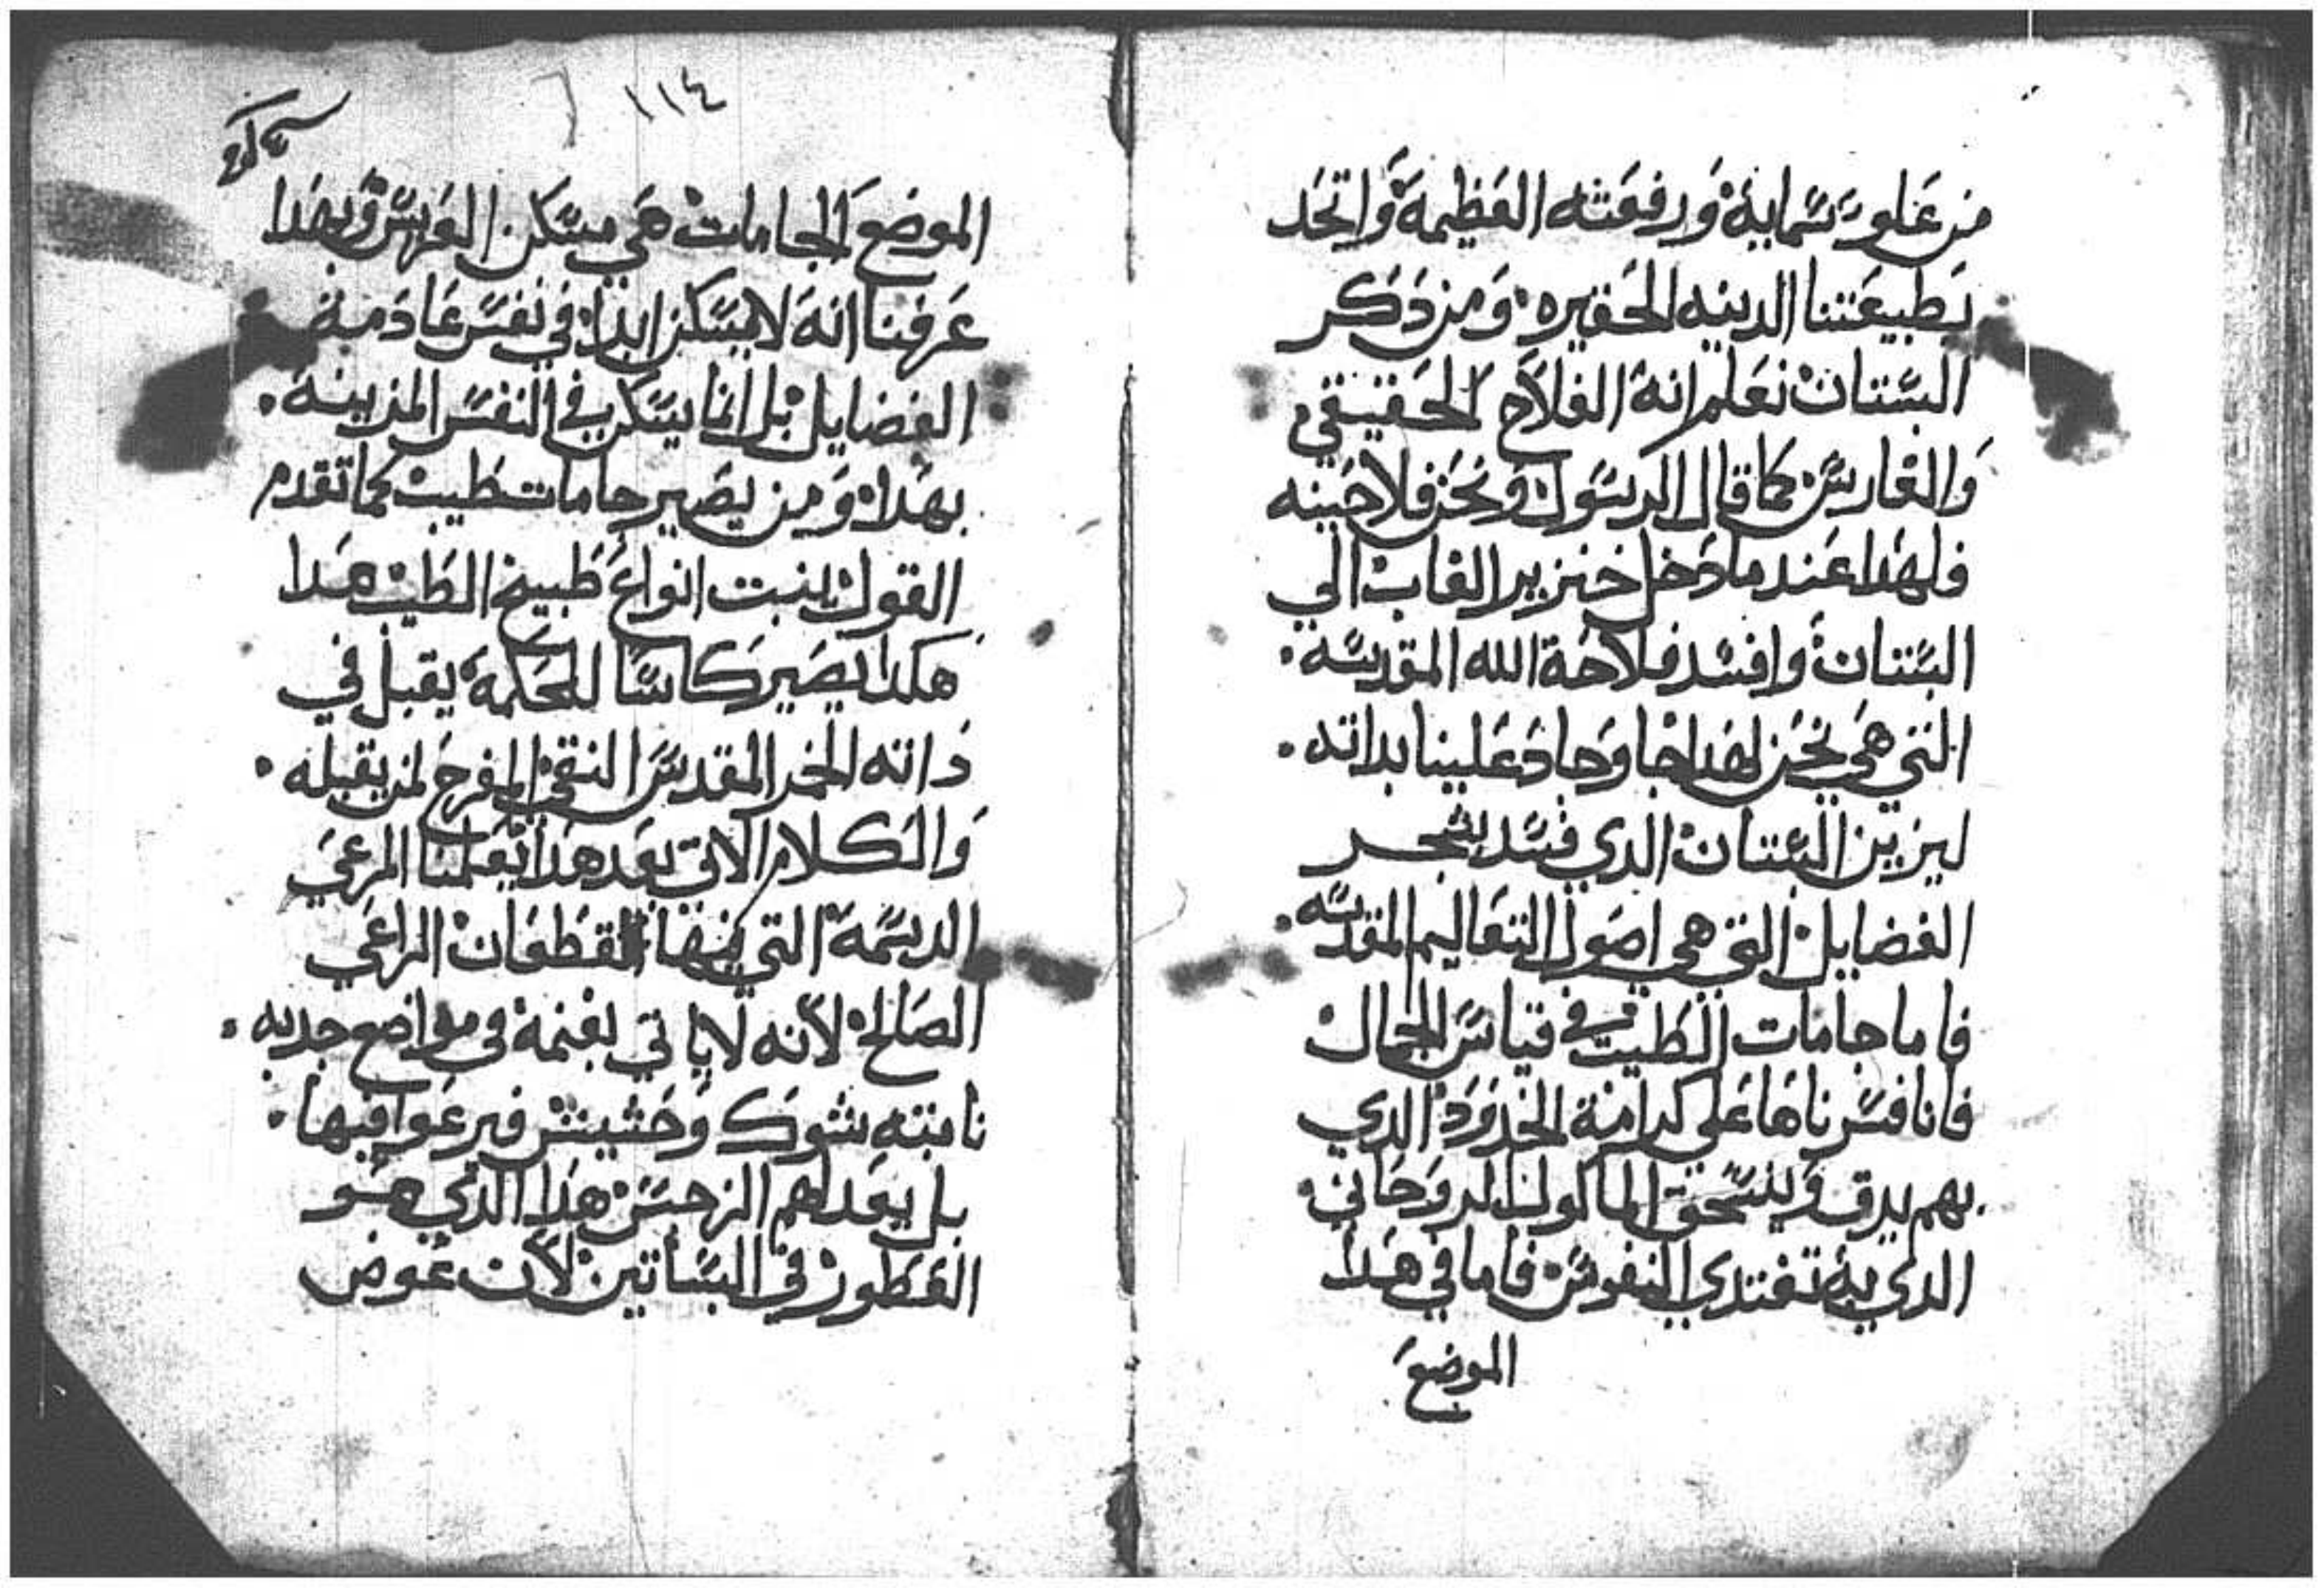 من علو سمايه ورفعته العظيمة واتحد
بطبيعتنا الدنيه الحقيره ومن ذكر
البستان نعلم انه الفلاح الحقيقي
والغارس كما قال الرسول ونحن فلاحينه
فلهدا عند ما دخل خنزير الغاب الي
البستان وافسد فلاحة الله المقدسه
التي هي نحن لهدا جا وجاد علينا بداته
ليزين البستان الدي فسد بشجر
الفضايل التي هي اصول التعاليم المقدسه
فاما جامات الطيب في قياس الجمال
فانا فسرناها علي كرامة الخدود الدي
بهم يدق وينسحق الماكول الروحاني
الدي به تغتدي النفوس فاما في هدا
الموضع
١١٤
الموضع الجامات هي مسكن العريس وبهدا
عرفنا انه لا يسكن ابدا في نفس عادمة
الفضايل بل انما يسكن في النفس المزينة
بهدا ومن يصير جامات طيب كما تقدم
القول ينبت انواع طبيخ الطيب هدا
هكدا يصير كاسا للحكمة يقبل في
داته الخمر المقدس النقي المفرح لمن يقبله
والكلام الاتي بعد هدا يعلمنا المرعي
الدسمة التي فيها القطعان الراعي
الصالح لانه لا ياتي بغنمة في مواضع جدبه
نابته شوك وحشيش فيرعوا فيها
بل يغداهم النرجس هدا الدي هو
العطور في البساتين لان عوض